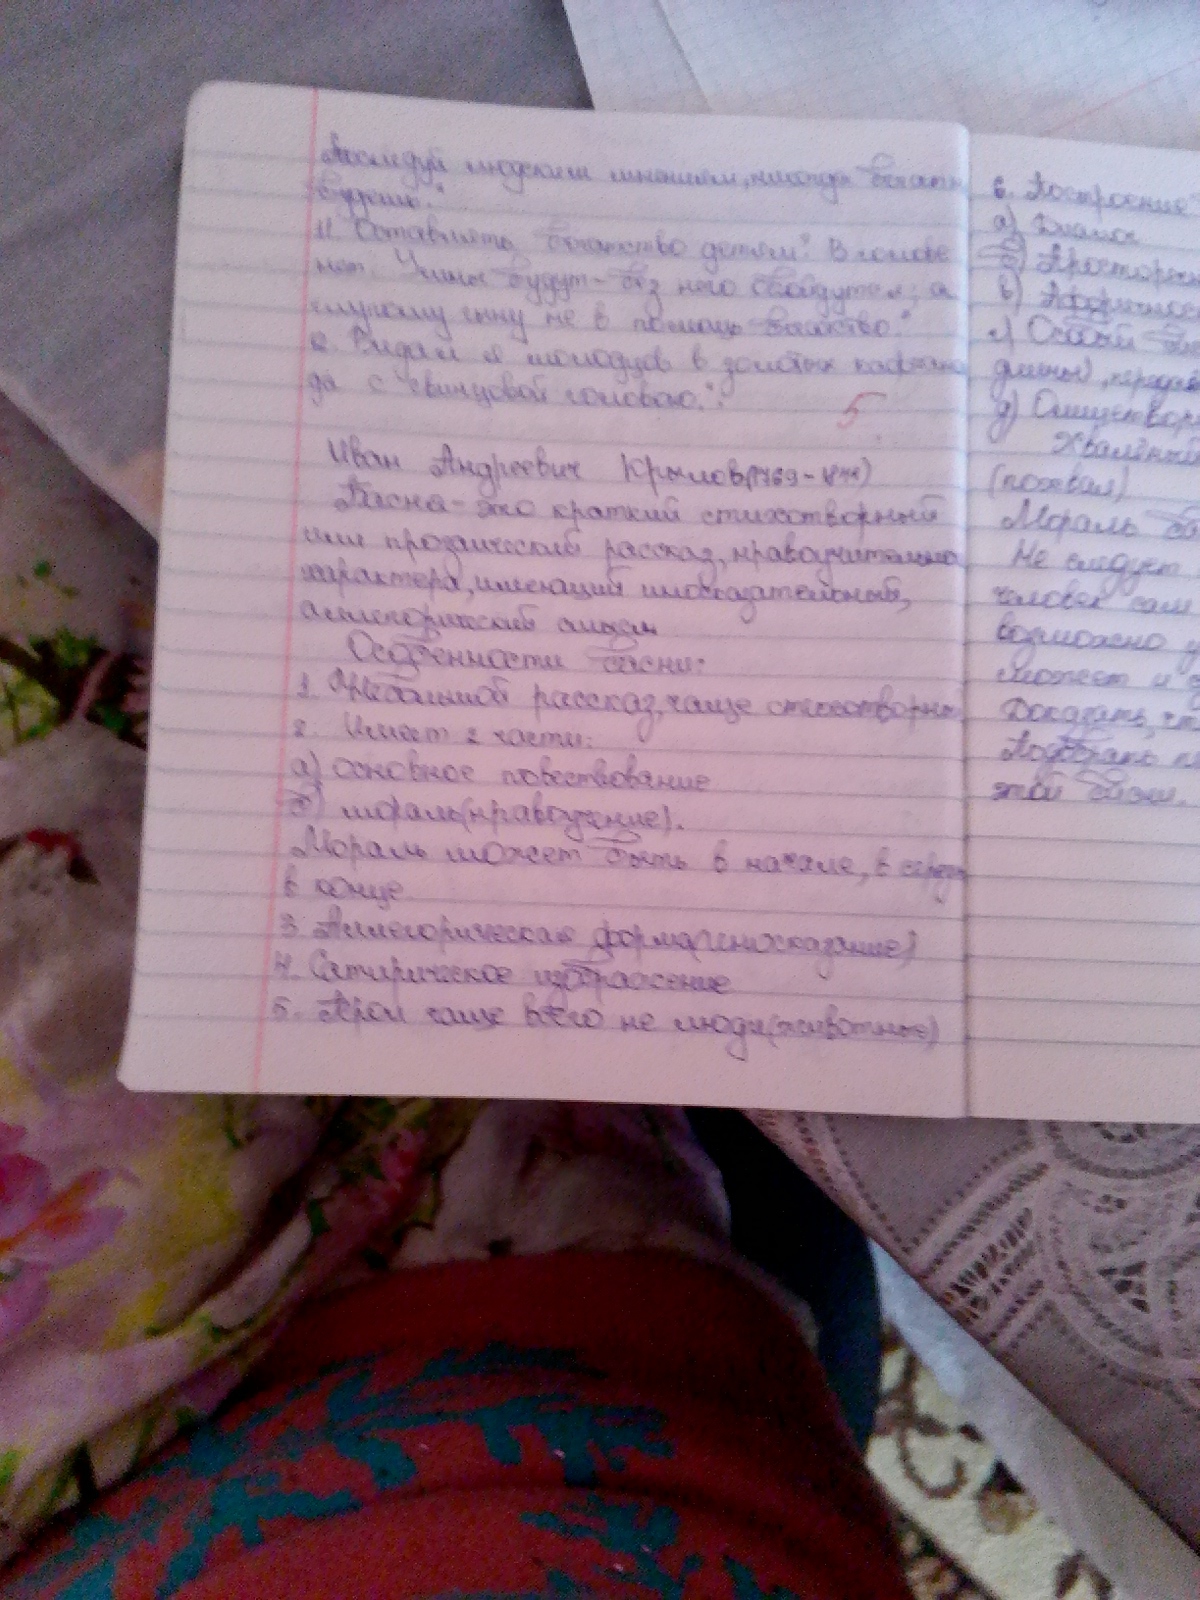 последуй людским мнениям, никогда богат
будешь."
11. Оставлять богатство детям? В голове
нет. Умны будут - без него обойдутся; а
глупому сыну не в помощь богатство."
Видал я молодцов в золотых кафтана
да с свинцовой головою.":
5
Иван Андреевич Крылов(1769-1844)
Басня - это краткий стихотворный
или прозаический рассказ, нравоучительно
характера, имеющий иносказательный,
аллегорический смысл
Особенности басни:
1. Небольшой рассказ, чаще стихотворн
2. Имеет 2 части:
а) основное повествование
б) мораль(нравоучение).
Мораль может быть в начале, в серед
в конце.
3. Аллегорическая форма(иносказание)
4. Сатирическое изображение
5. Герои чаще всего не люди(животные)
6. Построение
а) Диалог
б) Просторечн
в) Афористичнос
г) Особый
длины),
д) Олицетвор
Хвалёный
(похвал)
Мораль ба
Не следует
человек сам
возможно у
может и
Доказать, чт
Подобрать
этой басни.